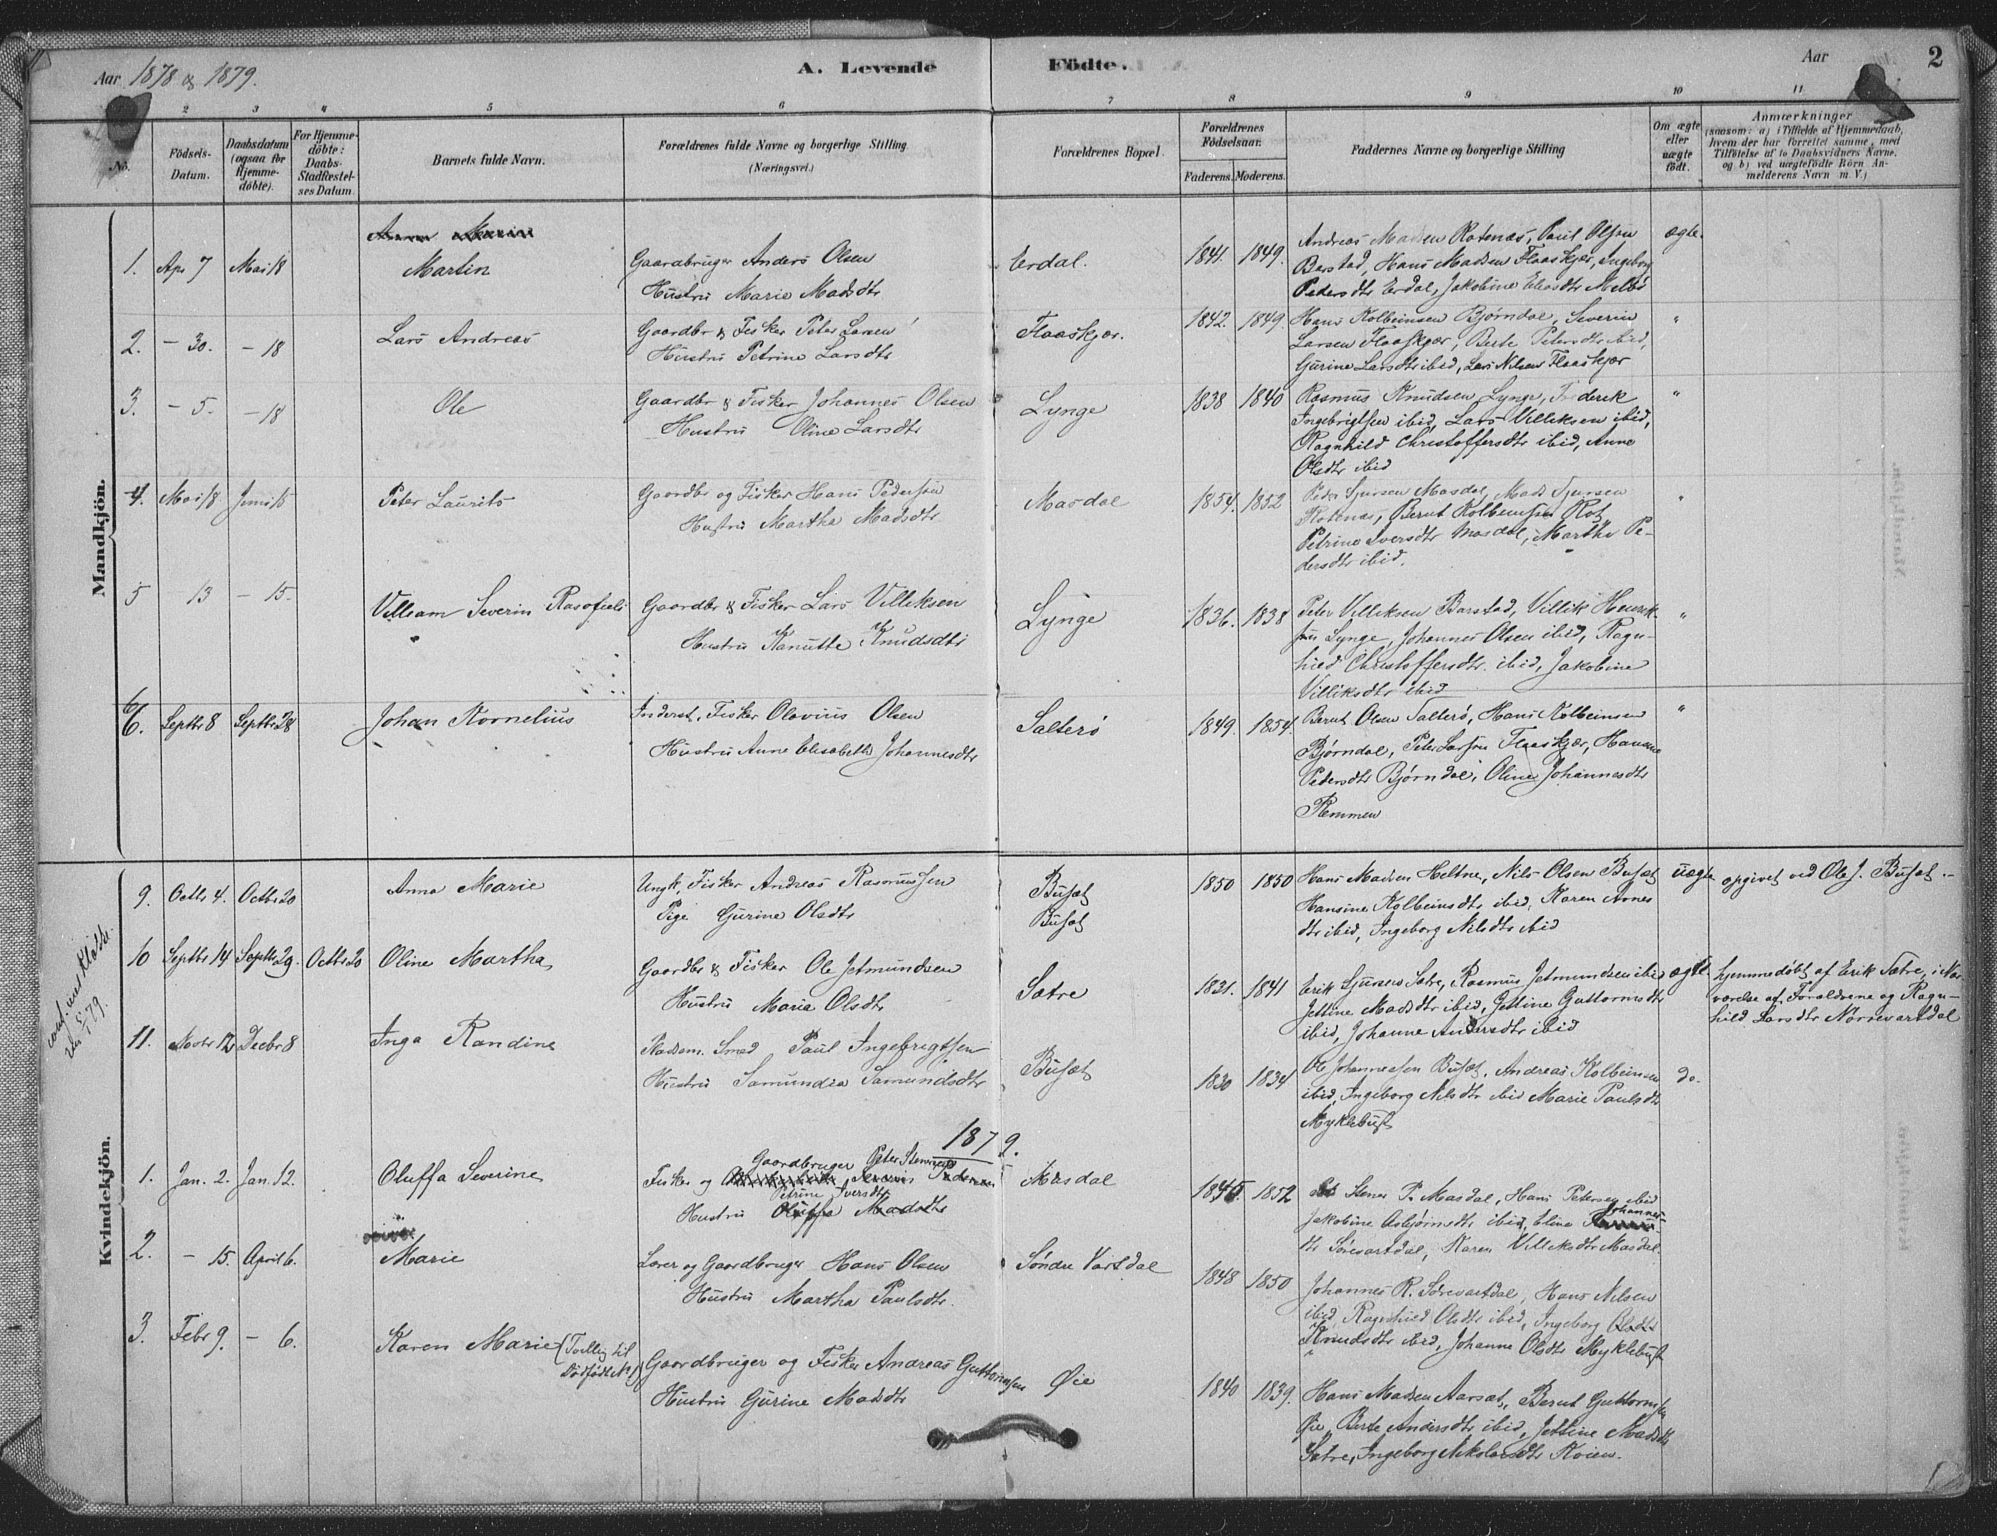 Aar 1878 & 1879.
A. Levende Födte.
Aar
2
2 3 4 5 6 7 8 9 10 11
No.
Födsels-Datum.
Daabsdatum (ogsaa for Hjemmedöbte).
For Hjemmedöbte: Daabs-Stadfæstelses Datum.
Barnets fulde Navn.
Forældrenes fulde Navne og borgerlige Stilling (Næringsvei.)
Forældrenes Bopæl.
Forældrenes Födselsaar.
Faderens. Moderens.
Faddernes Navne og borgerlige Stilling
Om ægte eller uægte födt.
Anmærkninger
(saasom: a) i Tilfælde af Hjemmedaab,
hvem der har forrettet samme, med
Tilföielse af to Daabsvidners Navne,
og b) ved uægtefödte Börn An-
melderens Navn m. V.)
Mandkjön.
1. Apr 7 Mai 18 Martin
Gaardbruger Anders Olsen
Hustru Marie Madsdtr
Erdal. 1841. 1849.
Andreas Madsen Rotenæs, Poul Olsen
Barstad, Hans Madsen Flaaskjær, Ingeborg
Pedersdtr Erdal, Jakobine Eliasdtr Melbø
ægte.
2. – 30. – 18 Lars Andreas
Gaardbr & Fisker Peter Larsen
Hustru Petrine Larsdtr
Flaaskjær. 1842. 1849.
Hans Kolbeinsen Bjørndal, Severin
Larsen Flaaskjær, Berte Petersdtr ibid,
Gurine Larsdtr ibid, Lars Nilsen Flaaskjær
"
3. – 5. – 18 Ole
Gaardbr & Fisker Johannes Olsen
Hustru Oline Larsdtr
Lynge 1838 1840
Rasmus Knudsen Lynge, Frederik
Ingebrigtsen ibid, Lars Villiksen ibid,
Ragnhild Christoffersdtr ibid, Anne
Olsdtr ibid
"
4. Mai 18 Juni 15 Peter Laurits
Gaardbr og Fisker Hans Pedersen
Hustru Martha Madsdtr
Masdal 1854. 1852
Peder Sjursen Masdal, Mads Sjursen
Rotenæs, Bernt Kolbeinsen Rot
Petrine Iversdtr Masdal, Marthe Pe-
dersdtr ibid.
"
5 13 – 15. Villiam Severin Rasofieli
Gaardbr & Fisker Lars Villiksen
Hustru Kanutte Knudsdtr
Lynge 1836. 1838
Peter Villiksen Barstad, Villik Henrik-
sen Lynge, Johannes Olsen ibid, Ragn-
hild Christoffersdtr. ibid, Jakobine
Villiksdtr ibid
"
6. Septbr 8 Septbr 28 Johan Kornelius
Inderst, Fisker Olavius Olsen
Hustru Anne Elisabeth Johannesdtr
Salterø 1849. 1854.
Bernt Olsen Salterø, Hans Kolbeinsen
Bjørndal, Peter Larsen Flaaskjær, Hansine
Pedersdtr Bjørndal, Oline Johannesdtr
Remmen
"
Kvindekjön.
9. Octbr 4. Octbr 20 Anna Marie
Ungk, Fisker Andreas Rasmussen
Pige Gurine Olsdtr
Busæt
Busæt
1850 1850
Hans Madsen Heltne, Nils Olsen Busæt
Hansine Kolbeinsdtr ibid, Karen Arnes
dtr ibid, Ingeborg Nilsdtr ibid
uægte opgivet ved Ole J. Busæt.
10 Septbr 14 Septbr 29. Octbr 20 Oline Martha
Gaardbr & Fisker Ole Jetmundsen
Hustru Maria Olsdtr
Sætre 1831. 1841
Erik Sjursen Sætre, Rasmus Jetmundsen ibid
Jettine Madsdtr ibid, Jettine Guttormsdtr
ibid, Johanne Andersdtr ibid
ægte. hjemmedøbt af Erik Sætre, i Nær
værelse af Forældrene og Ragn-
hild Larsdtr Nørrevartdal
11. Novbr 12 Decbr 8 Inga Randine
Pladsm. Smed Paul Ingebrigtsen
Hustru Samundia Samundsdtr
Busæt 1830 1834
Ole Johannessen Busæt, Andreas Kolbeinsen
ibid, Ingeborg Nilsdtr ibid Marie Paulsdtr
Myklebust
do.
1879.
1. Jan. 2. Jan. 12. Oluffa Severine
Gaardbruger Peter Stenersen
Fisker og
Petrine Iversdtr
Hustru Oluffa Madsdtr
Masdal 1845. 1852
Stener P. Masdal, Hans Petersen ibid
Johannes-
Jakobine Asbjørnsdtr ibid, Eline
dtr Sørevartdal, Karen Villiksdtr Masdal.
2. – 15. April 6. Marie
Lærer og Gaardbruger Hans Olsen
Hustru Martha Paulsdtr.
Søndre Vartdal 1848 1850
Johannes R. Sørevartdal, Hans Nilsen
ibid, Ragnhild Olsdtr ibid, Ingeborg Olsdtr
Knudsdtr ibid, Johanne Olsdtr Myklebust
3. Febr 9. – 6. Karen Marie (Tvilling til
Dødfødt No 1)
Gaardbruger og Fisker Andreas Guttormsen
Hustru Gurine Madsdtr
Øie 1840 1839.
Hans Madsen Aarsæt, Bernt Guttormsen
Øie, Berte Andersdtr ibid, Jettine Madsdtr
Sætre, Ingeborg Nikolaisdtr Kvien.